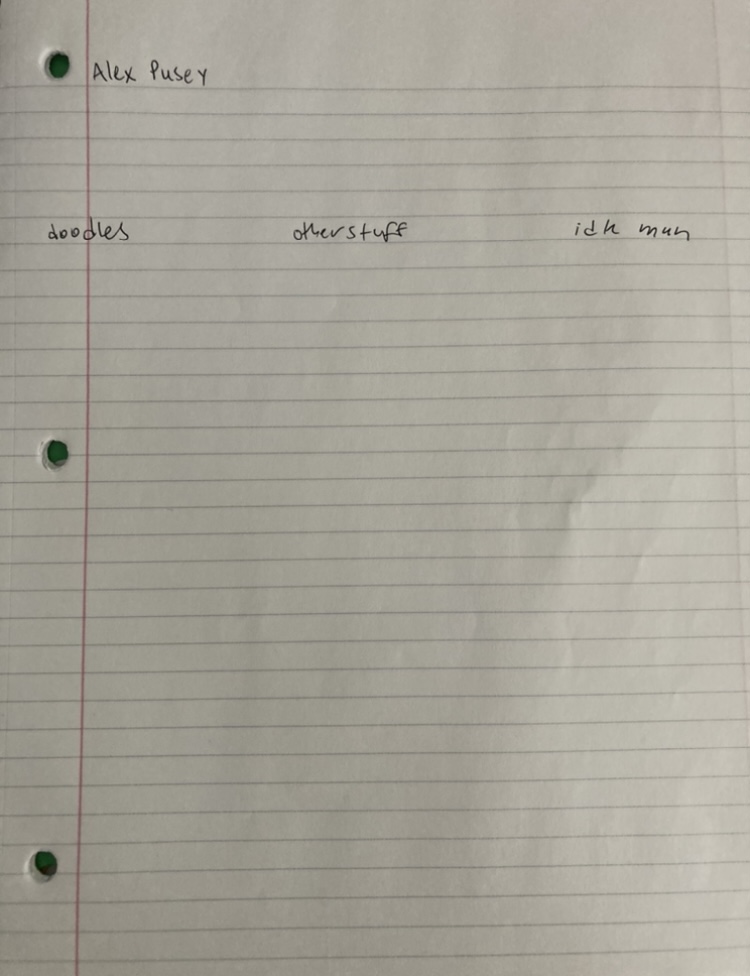 Alex Pusey
doodles other stuff idk man